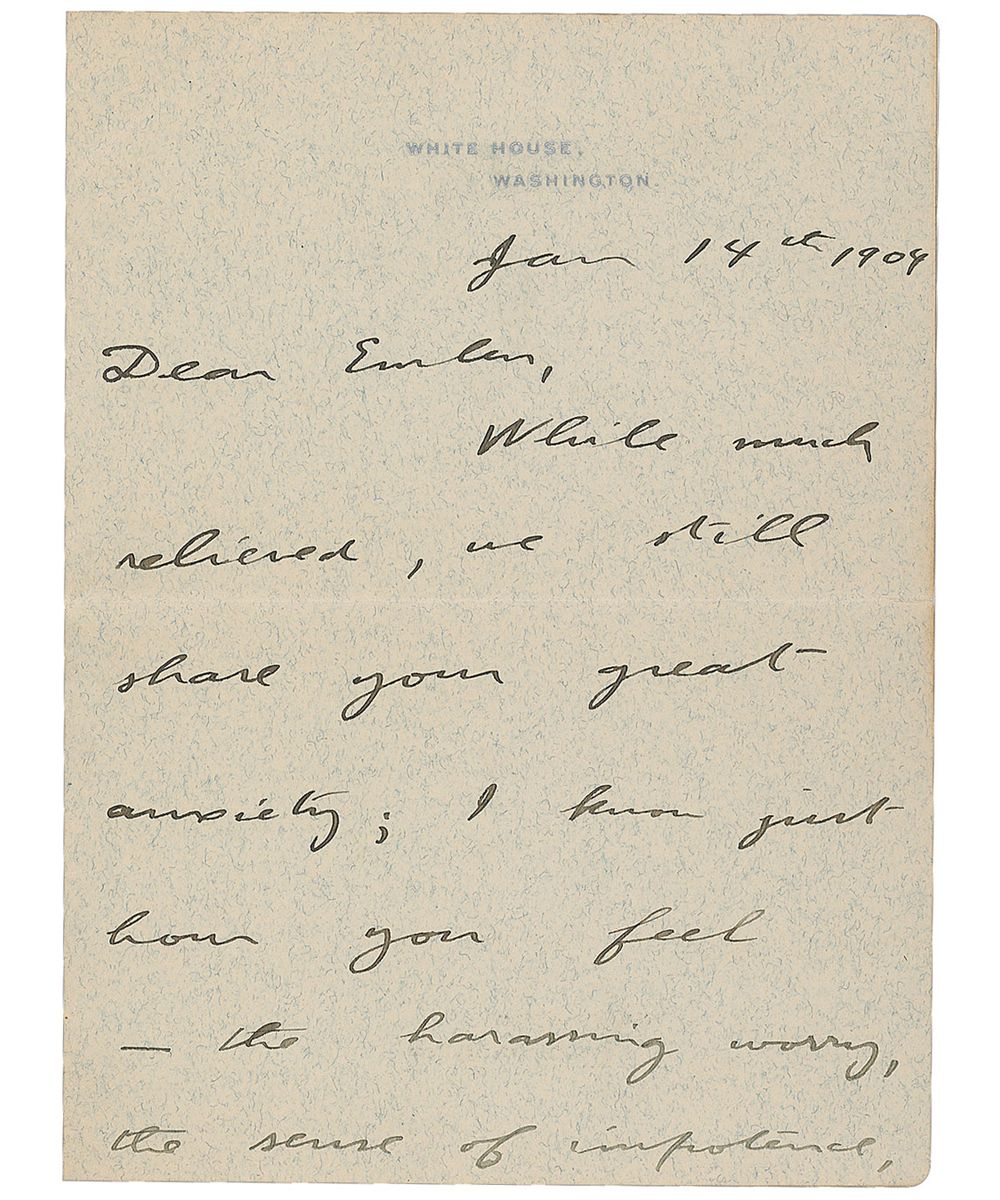 WHITE HOUSE,
WASHINGTON.
Jan 14th 1904
Dear Emlen,
While much
relieved, we still
share your great
anxiety; I know just
how you feel
— the harassing worry,
the sense of impotence,